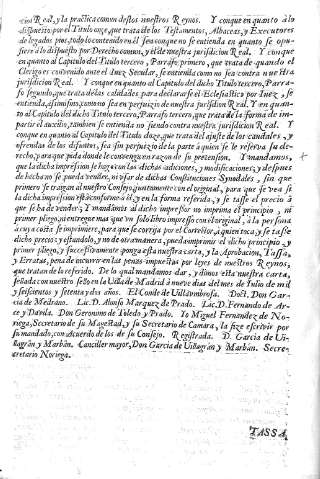 cion Real, y la practica comun destos nuestros Reynos. Y con que en quanto à lo
dispuesto por el Titulo onze, que trata de los Testamentos, Albaceas, y Executores
de legados pios, todo lo contenido en él sea con que no se entienda en quanto se opu-
siere à lo dispuesto por Derecho comun, y el de nuestra jurisdicion Real. Y con que
en quanto al Capitulo del Titulo tercero, Parrafo primero, que trata de quando el
Clerigo es convenido ante el Iuez Secular, se entienda como no sea contra nuestra
jurisdicion Real. Y con que en quanto al Capitulo del dicho Titulo tercero, Parra-
fo segundo, que trata de las calidades para declararse el Eclesiastico por Iuez, se
entienda, assimismo, como no sea en perjuizio de nuestra jurisdicion Real. Y en quan-
to al Capitulo del dicho Titulo tercero, Parrafo tercero, que trata de la forma de im-
partir el auxilio, tambien se entienda no siendo contra nuestra jurisdicion Real. Y
con que en quanto al Capitulo del Titulo doze, que trata del ajuste de los caudales, y
ofrendas de los difuntos, sea sin perjuizio de la parte à quien se le reserva su de-
recho, para que pida donde le convenga en razon de su pretension. Y mandamos,
que la dicha impression se haga con las dichas adiciones, y modificaciones, y despues
de hecha no se pueda vender, ni usar de dichas Constituciones Synodales, sin que
primero se traigan al nuestro Consejo, juntamente con el original, para que se vea si
la dicha impression està conforme à él, y en la forma referida, y se tasse el precio à
que se ha de vender; Y mandamos al dicho impressor no imprima el principio, ni
primer pliego, ni entregue mas que un solo libro impresso con el original, à la persona
à cuya costa se imprimiere, para que se corrija por el Corrector, à quien toca, y se tasse
dicho precio; y estandolo, y no de otra manera, pueda imprimir el dicho principio, y
primer pliego, y successivamente ponga esta nuestra carta, y la Aprobacion, Tassa,
y Erratas, pena de incurrir en las penas impuestas por leyes de nuestros Reynos,
que tratan de lo referido. De lo qual mandamos dar, y dimos esta nuestra carta,
sellada con nuestro sello en la Villa de Madrid à nueve dias del mes de Iulio de mil
y seiscientos y setenta y dos años. El Conde de Villavmbrosa. Doct. Don Gar-
cia de Medrano. Lic. D. Alonso Marquez de Prado. Lic. D. Fernando de Ar-
ce y Davila. Don Geronimo de Toledo y Prado. Yo Miguel Fernandez de No-
riega, Secretario de su Magestad, y su Secretario de Camara, la fize escrivir por
su mandado, con Acuerdo de los de su Consejo. Registrada. D. Garcia de Vi-
llagràn y Marbàn. Canciller mayor, Don Garcia de Villagràn y Marbàn. Secre-
cretario Noriega.
TASSA